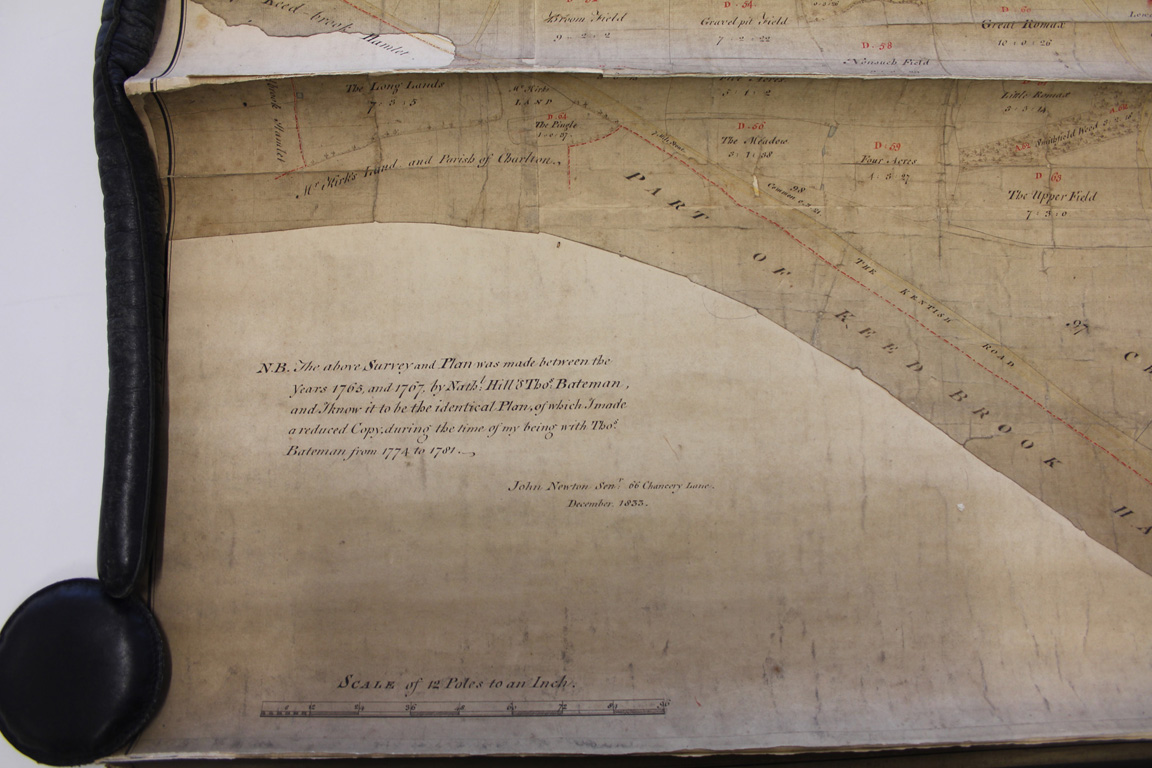 Keed brook Hamlet
Broom Field
9 : 2 : 2
Gravel pit Field
7 : 2 : 22
D - 58
Nonsuch Field
Great Romax
10 : 0 : 26
The Long Lands
7 : 3 : 5
Mr. Kirks
LAND
D : 61
The Pingle
Mr. Kirk's Land and Parish of Charlton
D - 60
The Meadow
3 : 1 : 38
D - 59
Four Acres
4 : 3 : 27
Little Romax
3 : 3 : 14
D : 63
The Upper Field
7 : 3 : 0
98
Common
PART OF KEED BROOK HA
THE KENTISH ROAD
97
N.B. The above Survey and Plan was made between the
Years 1763, and 1767, by Nathl. Hill & Thos. Bateman,
and I know it to be the identical Plan, of which I made
a reduced Copy, during the time of my being with Thos.
Bateman from 1774 to 1781.
John Newton Senr. 66 Chancery Lane.
December, 1833.
SCALE of 12 Poles to an Inch.
12 24 36 48 60 72 84 96